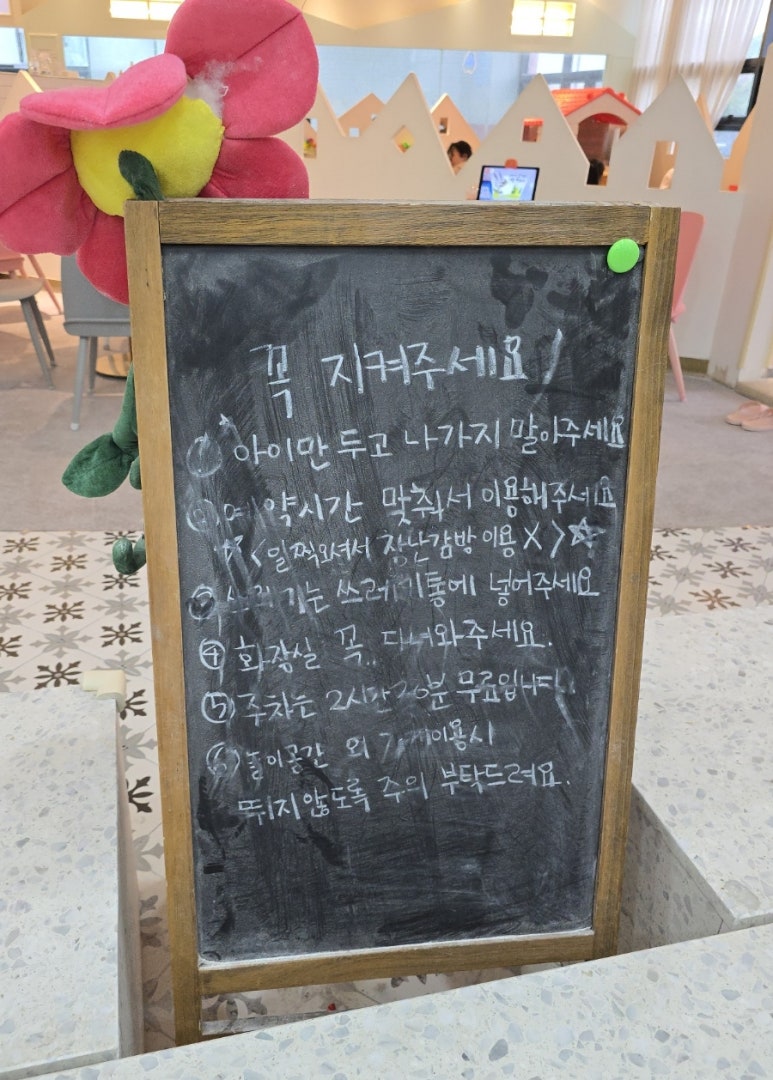 꼭 지켜주세요!
① 아이만 두고 나가지 말아주세요
② 예약시간 맞춰서 이용해주세요
☆<일찍오셔서 장난감방 이용 X>☆
③ 쓰레기는 쓰레기통에 넣어주세요
④ 화장실 꼭 다녀와주세요.
⑤ 주차는 2시간 20분 무료입니다.
⑥ 놀이공간 외 이용시
뛰지않도록 주의 부탁드려요.